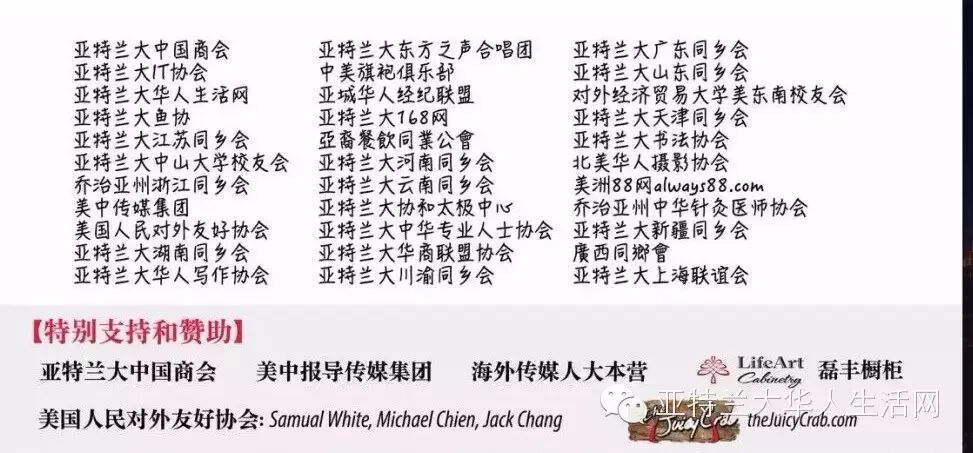 亚特兰大中国商会 亚特兰大东方之声合唱团 亚特兰大广东同乡会
亚特兰大IT协会 中美旗袍俱乐部 亚特兰大山东同乡会
亚特兰大华人生活网 亚城华人经纪联盟 对外经济贸易大学美东南校友会
亚特兰大鱼协 亚特兰大168网 亚特兰大天津同乡会
亚特兰大江苏同乡会 亞裔餐飲同業公會 亚特兰大书法协会
亚特兰大中山大学校友会 亚特兰大河南同乡会 北美华人摄影协会
乔治亚州浙江同乡会 亚特兰大云南同乡会 美洲88网always88.com
美中传媒集团 亚特兰大协和太极中心 乔治亚州中华针灸医师协会
美国人民对外友好协会 亚特兰大中华专业人士协会 亚特兰大新疆同乡会
亚特兰大湖南同乡会 亚特兰大华商联盟协会 廣西同鄉會
亚特兰大华人写作协会 亚特兰大川渝同乡会 亚特兰大上海联谊会
【特别支持和赞助】
亚特兰大中国商会 美中报导传媒集团 海外传媒人大本营 LifeArt Cabinetry 磊丰橱柜
美国人民对外友好协会: Samual White, Michael Chien, Jack Chang The Juicy Crab theJuicyCrab.com
亚特兰大华人生活网